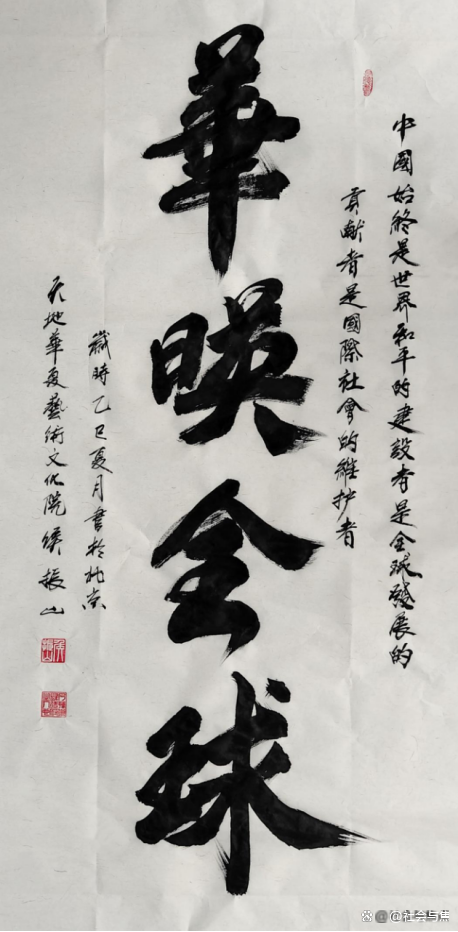 中國始終是世界和平的建設者是全球發展的
貢献者是國際社會的維护者
華暎全球
歲時乙巳夏月書於北京
天地華夏藝術文化院侯振山
侯振山
@社会与焦